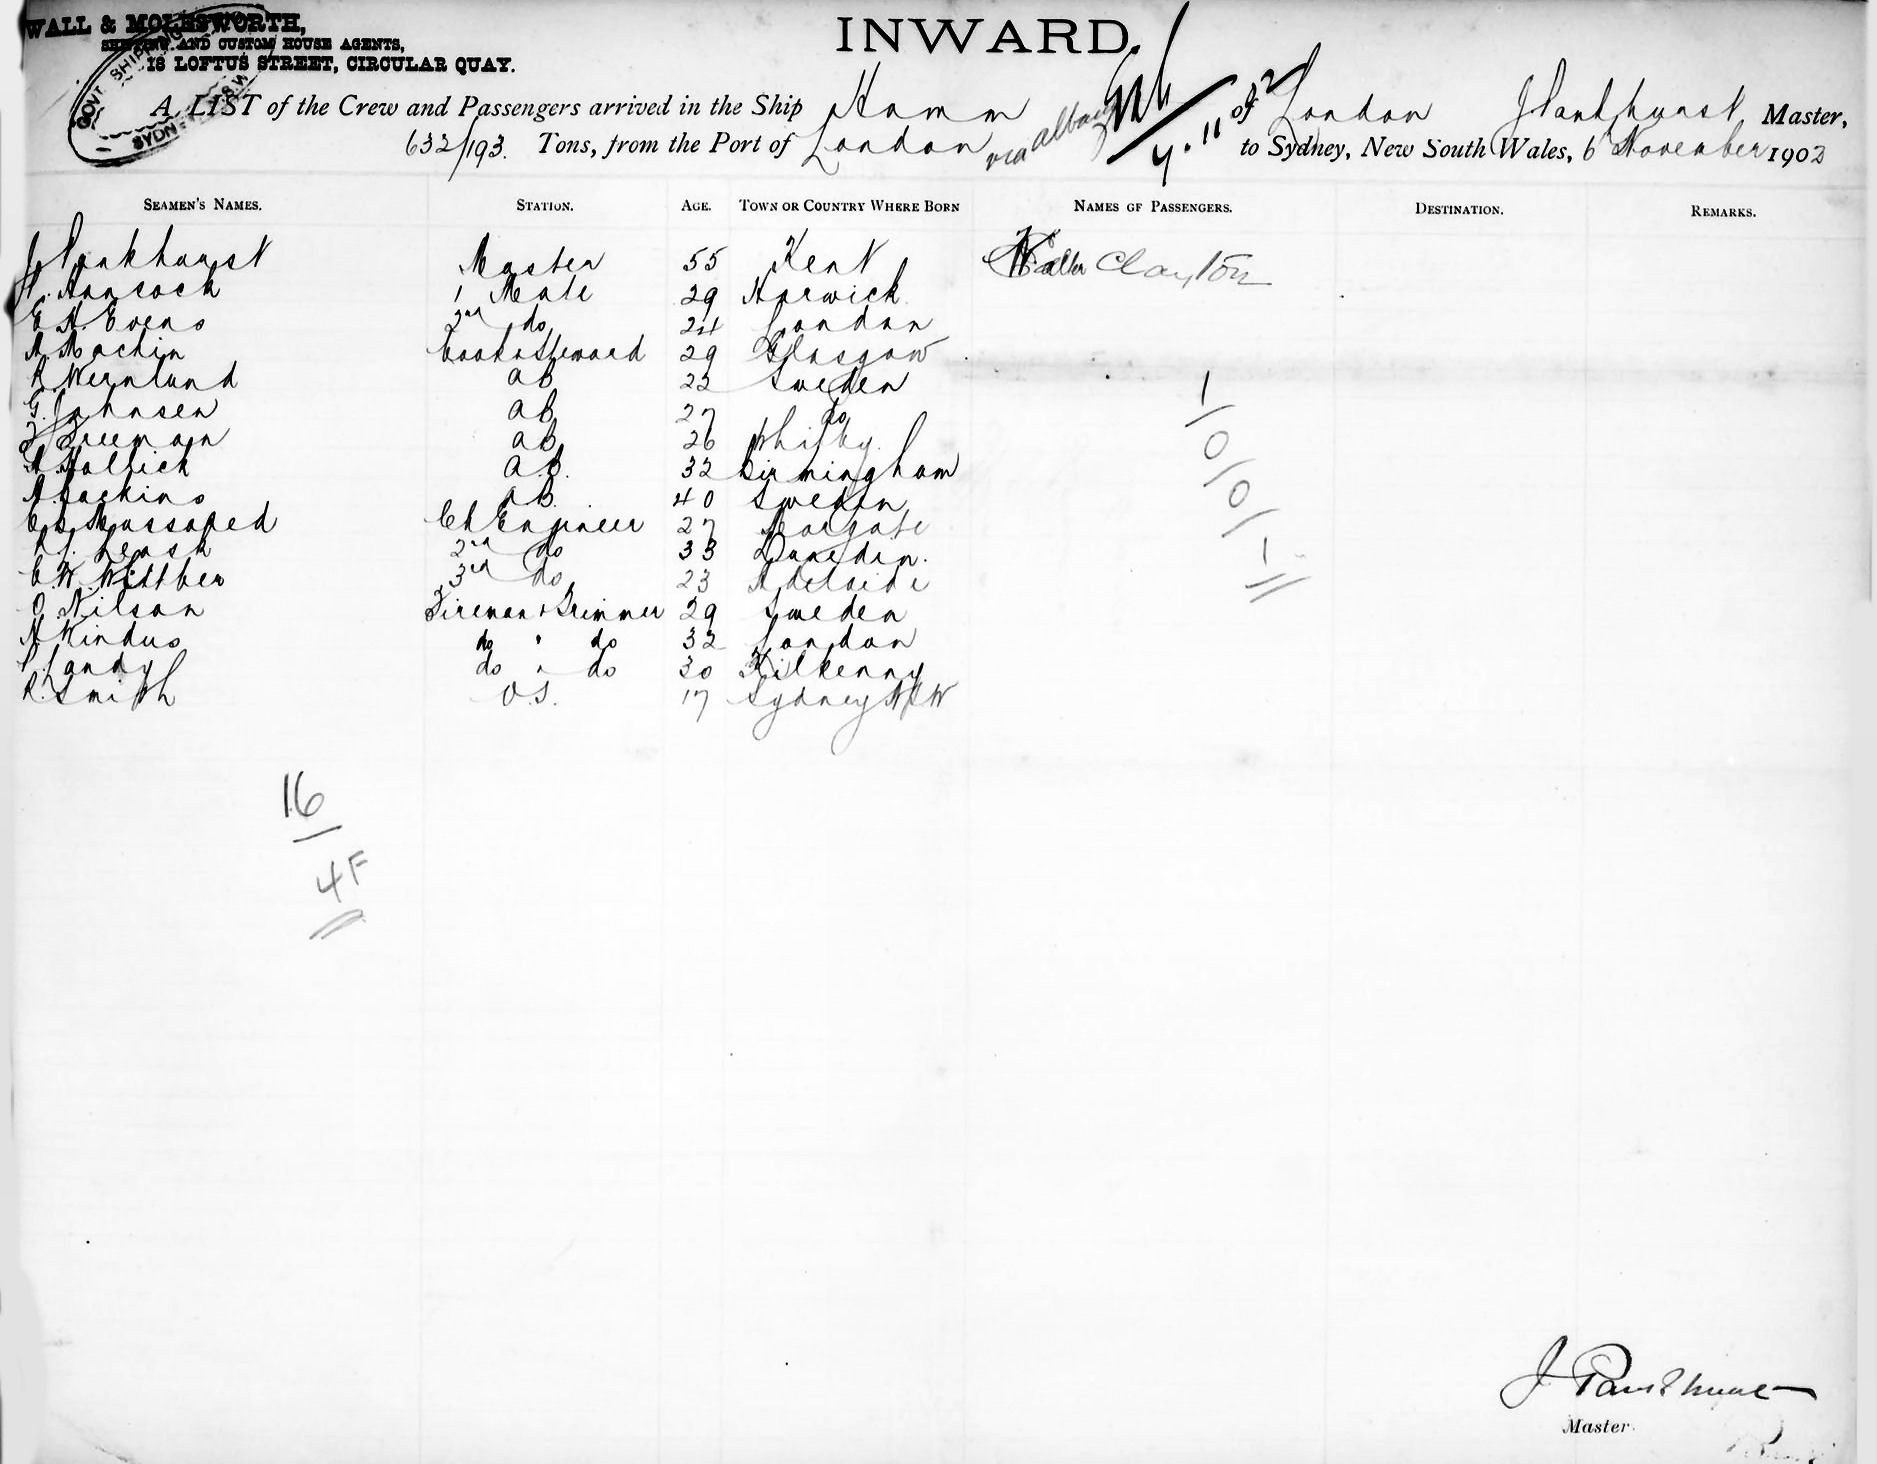 WALL & MOLESWORTH,
SHIPPING AND CUSTOM HOUSE AGENTS,
18 LOFTUS STREET, CIRCULAR QUAY.
GOVT SHIPPING SYDNEY N.S.W
INWARD.
A LIST of the Crew and Passengers arrived in the Ship of London J Pankhurst Master,
632/193. Tons, from the Port of London via albany 4.11.02 to Sydney, New South Wales, 6 November 1902
SEAMEN'S NAMES. STATION. AGE. TOWN OR COUNTRY WHERE BORN NAMES OF PASSENGERS. DESTINATION. REMARKS.
J Pankhurst Master 55 Kent Walter Clayton
H. Hancock 1 Mate 29 Harwick
E H. Evens 2nd do 24 London
A Machin Cook & Steward 29 Glasgow
R Wernlund AB 22 Sweden
G. Johnsen AB 27 do
F Freeman AB 26 Whitby.
A Hollick AB. 32 Birmingham
AB 40 Sweden
Ch Engineer 27 Margate
R J. Leask 2nd do 33 Dunedin.
C. W. Witther 3rd do 23 Adelaide
O Nilson Fireman & Trimmer 29 Sweden
H Kindus do " do 32 London
P Landy do " do 30 Kilkenny
R. Smith O.S. 17 Sydney NSW
1/0/0/-11
16
4F
J Pankhurst
Master.